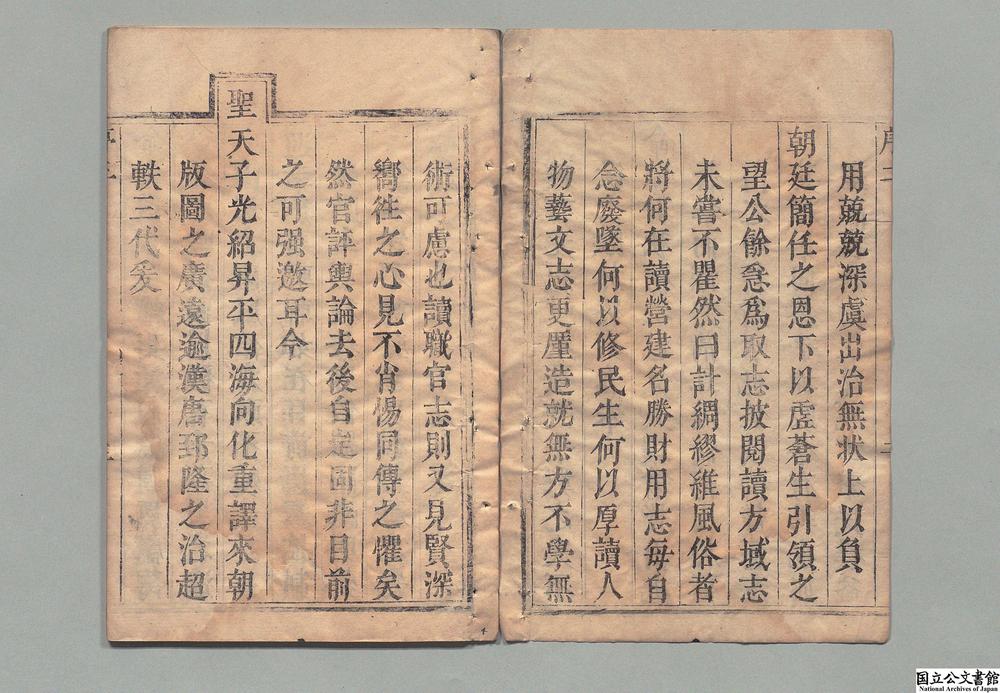 用兢兢深虞出治無状上以負
朝廷簡任之恩下以虚蒼生引領之
望公餘急爲取志披閱讀方域志
未嘗不瞿然曰計綢繆維風俗者
將何在讀營建名勝財用志每自
念廢墜何以修民生何以厚讀人
物藝文志更厪造就無方不學無
術可慮也讀職官志則又見賢深
嚮往之心見不肖惕同傳之懼矣
然官評輿論去後自定固非目前
之可强邀耳今
聖天子光紹昇平四海向化重譯來朝
版圖之廣遠逾漢唐郅隆之治超
軼三代爰
国立公文書館
National Archives of Japan